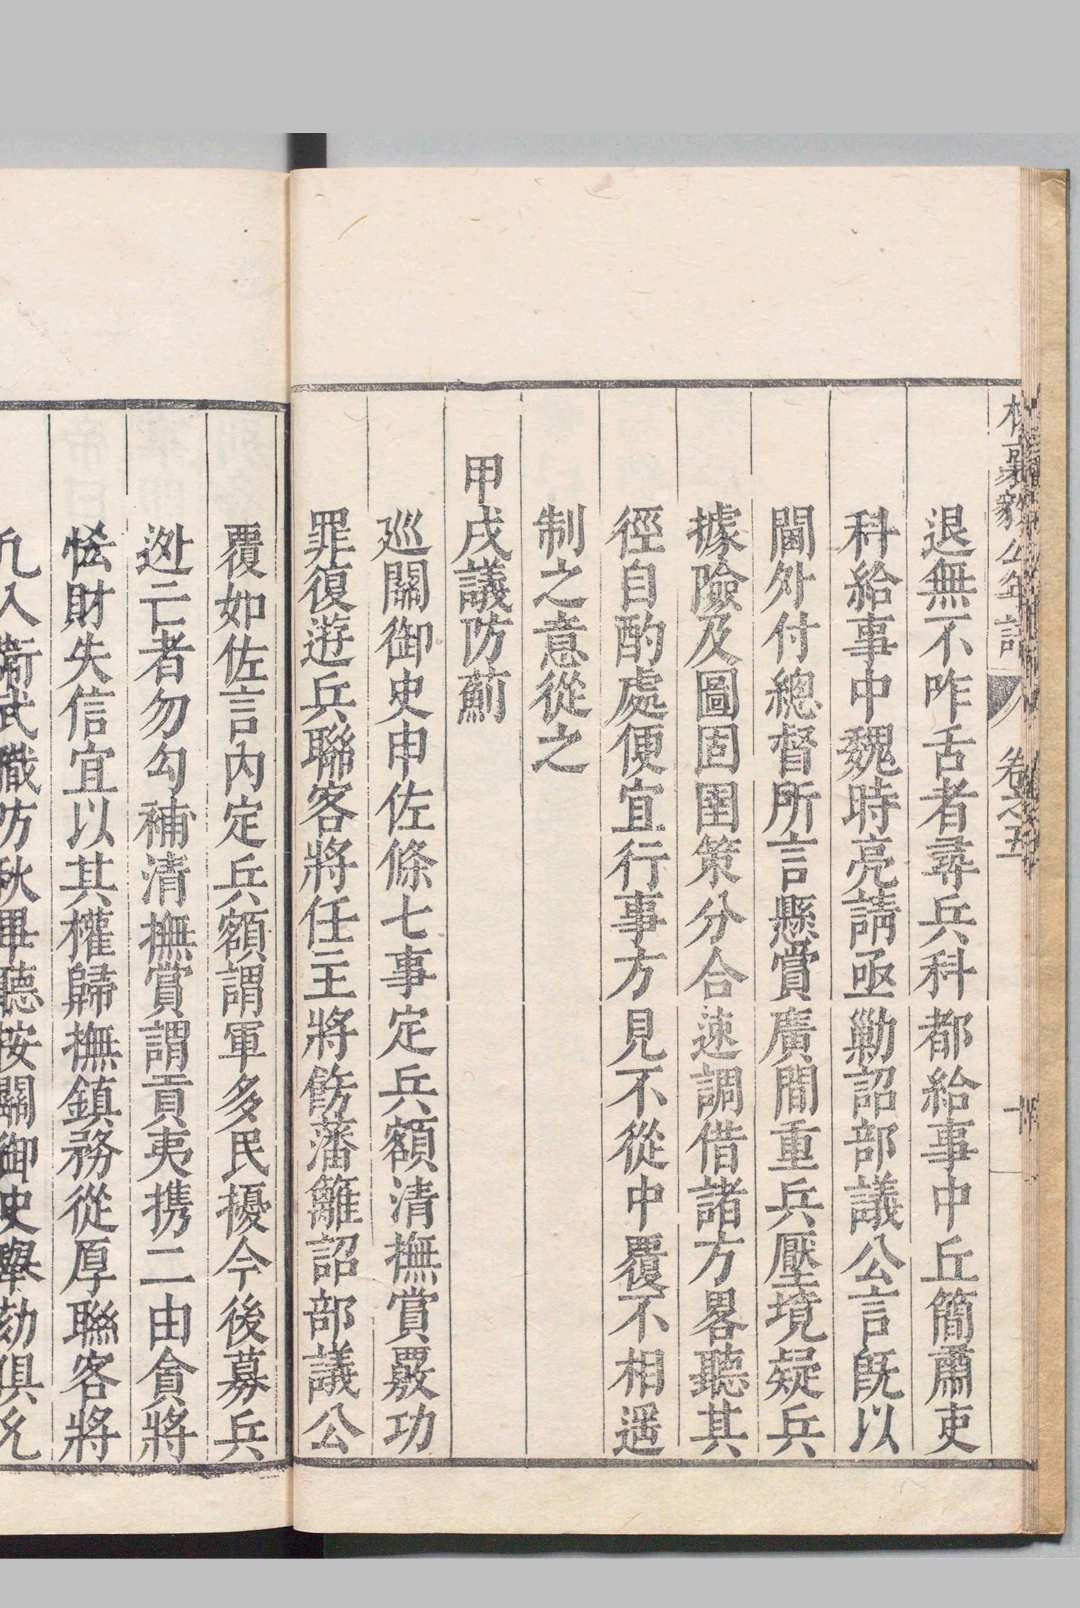 襄毅公年譜 卷之五
退無不咋舌者尋兵科都給事中丘簡肅吏
科給事中魏時亮請亟勦詔部議公言既以
閫外付總督所言懸賞廣間重兵壓境疑兵
據險及圖固圉策分合速調借諸方畧聽其
徑自酌處便宜行事方見不從中覆不相遥
制之意從之
甲戌議防薊
巡關御史申佐條七事定兵額清撫賞覈功
罪復遊兵聯客將任主將飭藩籬詔部議公
覆如佐言内定兵額謂軍多民擾今後募兵
逃亡者勿勾補清撫賞謂貢夷携二由貪將
恡財失信宜以其權歸撫鎮務從厚聯客將
九人衛武職防秋畢聽按關御史舉劾俱允